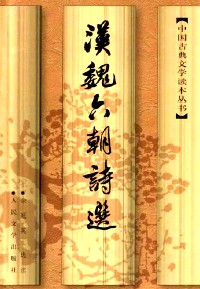 【中国古典文学读本丛书】
漢魏六朝詩選
人民文学出版社